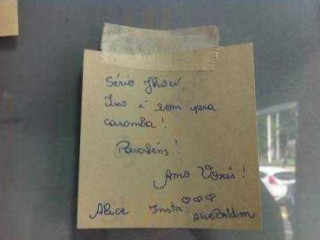 Sério Show,
Isso é bom pra
caramba!
Parabéns!
Amo Vocês!
Alice Insta: